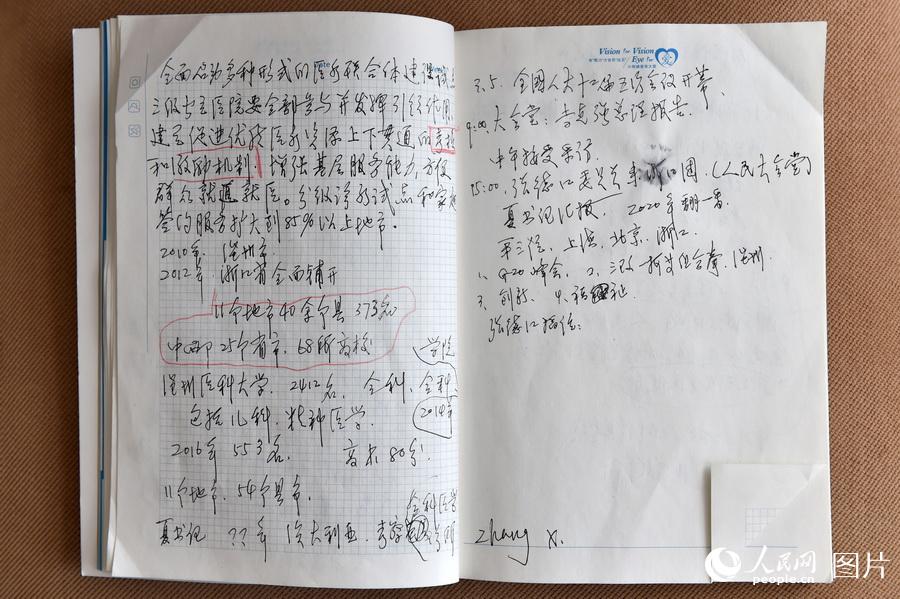 全面启动多种形式的医疗联合体建设试点
三级公立医院要全部参与并发挥引领作用
建立促进优质医疗资源上下贯通的考核
和激励机制，增强基层服务能力，方便
群众就近就医。分级诊疗试点和家庭
签约服务扩大到85%以上地市。
2010年 温州市
2012年 浙江省全面铺开
11个地市40余个县 373名
中西部 25个省市，68所高校
学院
温州医科大学 2412名，全科、全科
包括儿科、精神医学
2014年
2016年 553名
11个地市，54个县市，
全科医学
夏书记 ??年 意大利
Vision for Vision
Eye for
3.5. 全国人大十二届五次会议开幕、
9:00、大会堂：李克强总理报告.
中午接受采访
15:00、张德江委员长 团.(人民大会堂)
夏书记汇报、2020年翻一番
第三位，上海、北京、浙江
1、G20峰会、2、 组合拳、温州
3、创新、4、
张德江
Zhang X.
人民网 图片
people.cn